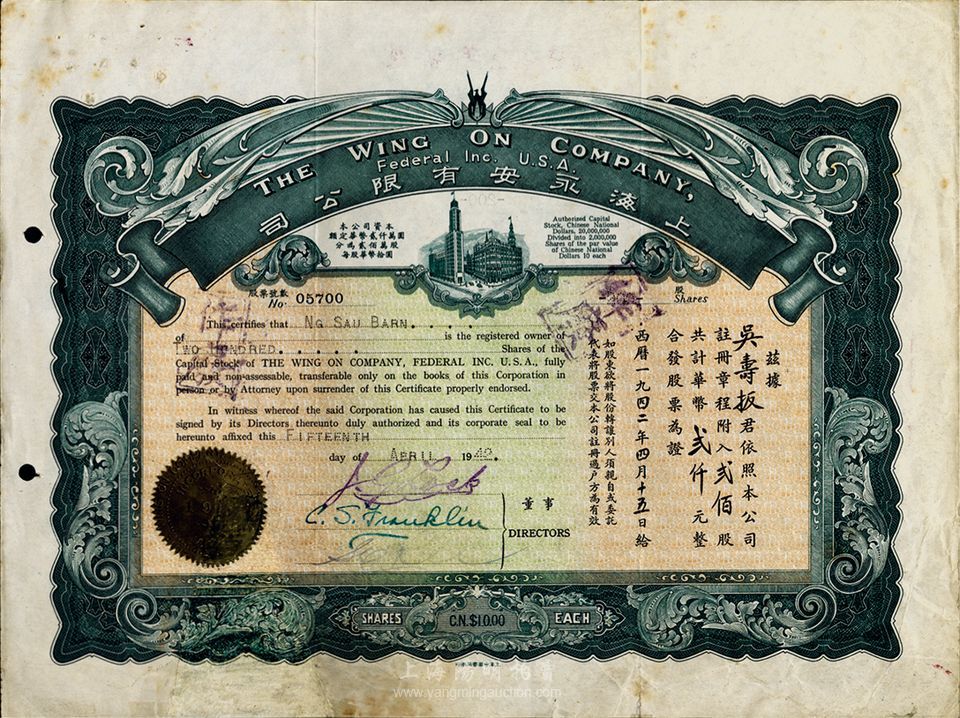 THE WING ON COMPANY,
Federal Inc. U.S.A.
上海永安有限公司
本公司資本
額定華幣貳仟萬圓
分為貳佰萬股
每股華幣拾圓
Authorized Capital
Stock, Chinese National
Dollars, 20,000,000
Divided into 2,000,000
Shares of the par value
of Chinese National
Dollars 10 each
股票號數
No. 05700
股
Shares
This certifies that NG SAU BARN.....
of is the registered owner of
TWO HUNDRED....... Shares of the
Capital Stock of THE WING ON COMPANY, FEDERAL INC. U.S.A., fully
paid and non-assessable, transferable only on the books of this Corporation in
person or by Attorney upon surrender of this Certificate properly endorsed.
In witness whereof the said Corporation has caused this Certificate to be
signed by its Directors thereunto duly authorized and its corporate seal to be
hereunto affixed this FIFTEENTH
day of APRIL 1942.
C. S. Franklin
董事
DIRECTORS
茲據
吳壽扳君依照本公司
註冊章程附入貳佰股
共計華幣貳仟元整
合發股票為證
西曆一九四二年四月十五日給
如股東欲將股份轉讓別人須親自或委託
代表將股票交本公司註冊過戶方為有效
SHARES C.N.$10.00 EACH
上海陽明拍賣
www.yangmingauction.com